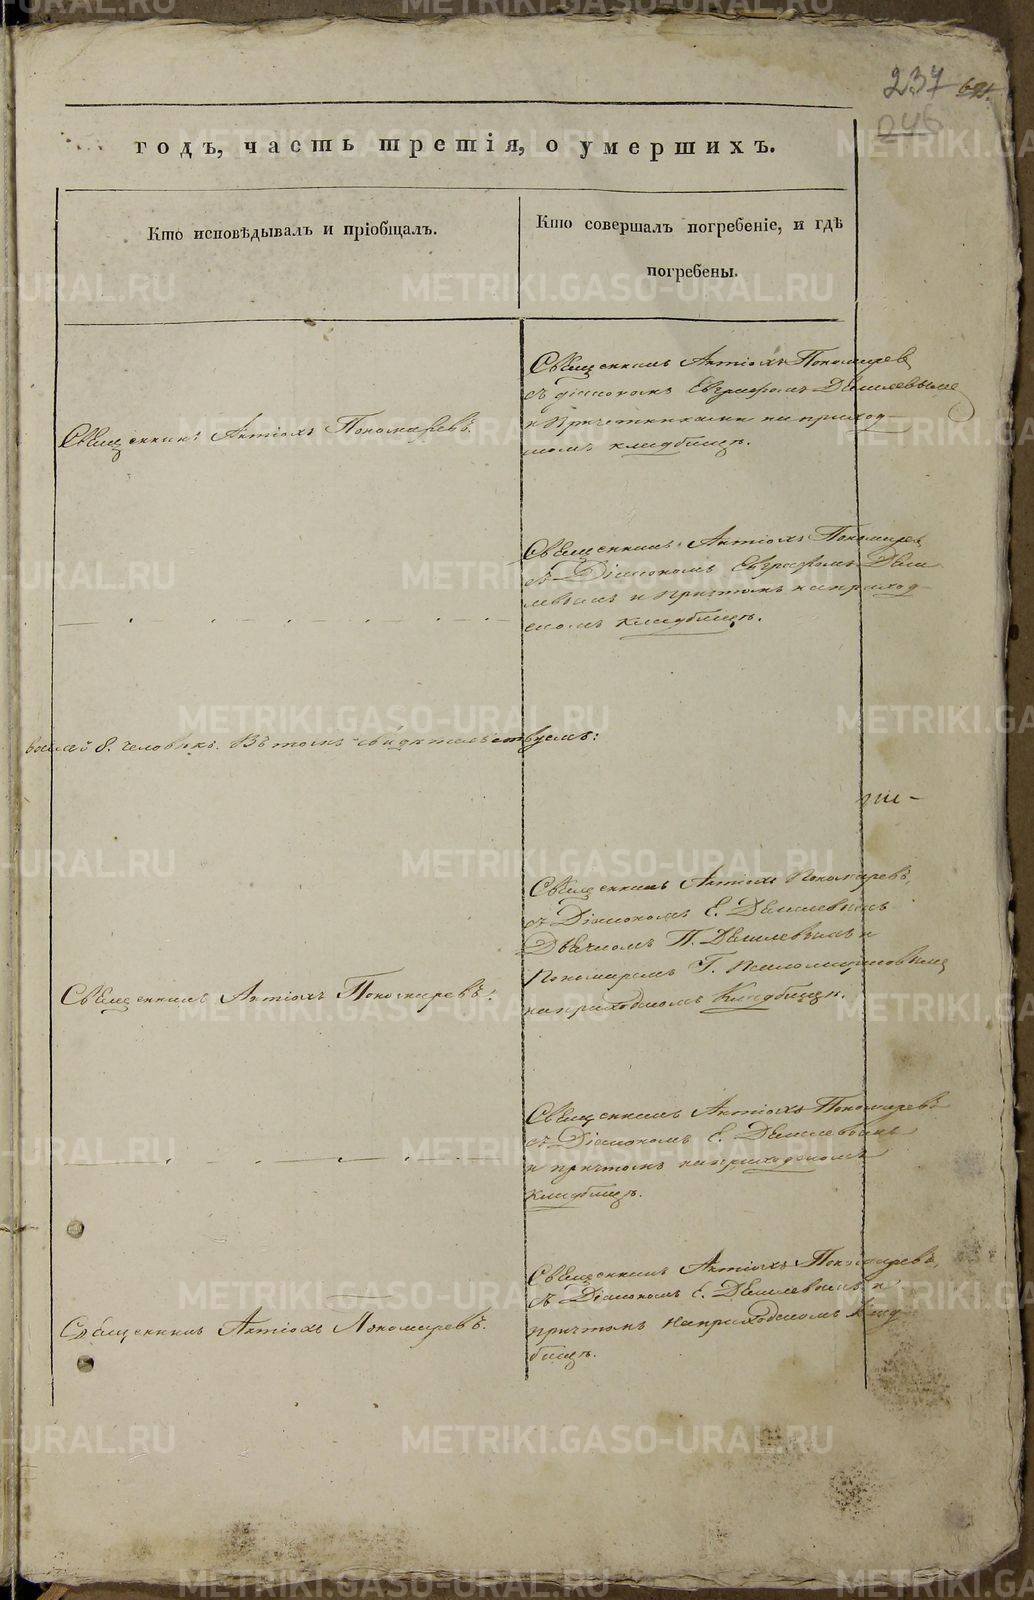 237
годъ, часть третія, о умершихъ.
Кто исповѣдывалъ и пріобщалъ.
Кто совершалъ погребеніе, и гдѣ
погребены.
Священникъ Антіохъ Пономарев
съ діакономъ Евграфомъ
и Причетниками на приход
скомъ кладбищѣ.
Священникъ Антіохъ Пономаревъ.
Священникъ Антіохъ Пономарев
съ Діакономъ Евграфомъ
и Причтомъ на приход
скомъ кладбищѣ.
8. человѣкъ. Въ томъ свидѣтельствуемъ:
Священникъ Антіохъ Пономаревъ,
съ Діакономъ Е.
Дьячкомъ П. и
Пономаремъ Г.
на приходскомъ Кладбищѣ.
Священникъ Антіохъ Пономаревъ.
Священникъ Антіохъ Пономаревъ
съ Діакономъ Е.
и причтомъ на приходскомъ
кладбищѣ.
Священникъ Антіохъ Пономаревъ,
съ Діакономъ Е. и
причтомъ на приходскомъ Клад
бищѣ.
Священникъ Антіохъ Пономаревъ.
METRIKI.GASO-URAL.RU